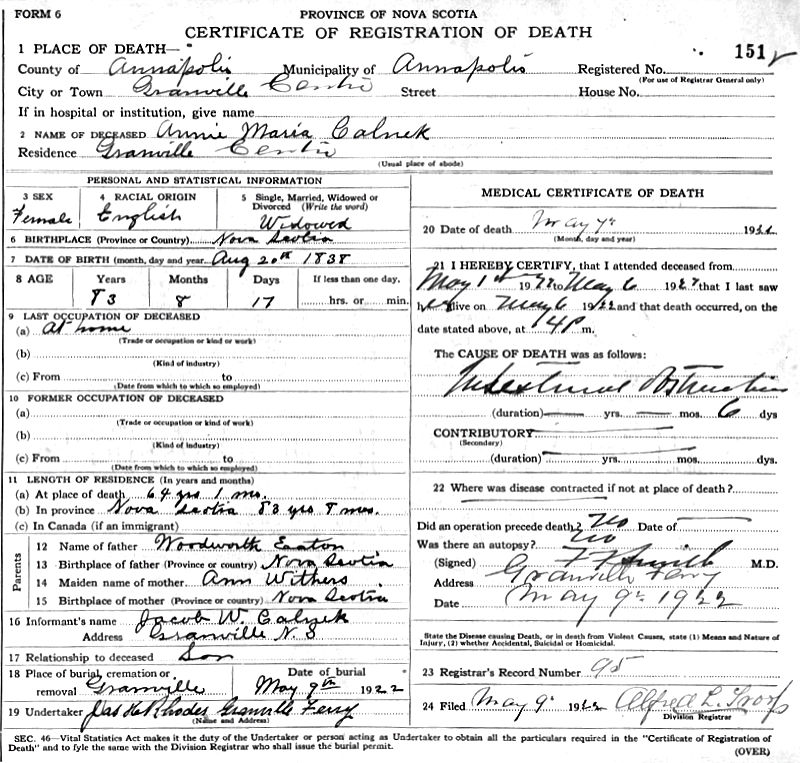 FORM 6
PROVINCE OF NOVA SCOTIA
CERTIFICATE OF REGISTRATION OF DEATH
1 PLACE OF DEATH—
151
County of Annapolis Municipality of Annapolis Registered No.
(For use of Registrar General only)
City or Town Granville Centre Street House No.
If in hospital or institution, give name
2 NAME OF DECEASED Annie Maria Calnek
Residence Granville Centre
(Usual place of abode)
PERSONAL AND STATISTICAL INFORMATION
3 SEX Female
4 RACIAL ORIGIN English
5 Single, Married, Widowed or Divorced (Write the word) Widowed
6 BIRTHPLACE (Province or Country) Nova Scotia
7 DATE OF BIRTH (month, day and year) Aug 20th 1838
8 AGE Years Months Days If less than one day,
83 8 17 hrs. or min.
9 LAST OCCUPATION OF DECEASED
(a) At home
(Trade or occupation or kind or work)
(b)
(Kind of industry)
(c) From to
(Date from which to which so employed)
10 FORMER OCCUPATION OF DECEASED
(a)
(Trade or occupation or kind of work)
(b)
(Kind of industry)
(c) From to
(Date from which to which so employed)
11 LENGTH OF RESIDENCE (In years and months)
(a) At place of death 64 yrs 1 mo.
(b) In province Nova Scotia 83 yrs 8 mos.
(c) In Canada (if an immigrant)
Parents
12 Name of father Woodworth Eaton
13 Birthplace of father (Province or country) Nova Scotia
14 Maiden name of mother Ann Withers
15 Birthplace of mother (Province or country) Nova Scotia
16 Informant's name Jacob W. Calnek
Address Granville N. S
17 Relationship to deceased Son
18 Place of burial, cremation or removal Granville
Date of burial May 9th 1922
19 Undertaker Jas H Rhodes Granville Ferry
(Name and Address)
MEDICAL CERTIFICATE OF DEATH
20 Date of death May 7th 1922
(Month, day and year)
21 I HEREBY CERTIFY, that I attended deceased from
May 1st 1922 to May 6 1922 that I last saw
her alive on May 6 1922 and that death occurred, on the
date stated above, at m.
The CAUSE OF DEATH was as follows:
Intestinal Obstruction
(duration) — yrs. — mos. 6 dys
CONTRIBUTORY
(Secondary)
(duration) yrs. mos. dys.
22 Where was disease contracted if not at place of death?
Did an operation precede death? No Date of
Was there an autopsy? No
(Signed) M.D.
Address Granville Ferry
Date May 9th 1922
State the Disease causing Death, or in death from Violent Causes, state (1) Means and Nature of
Injury, (2) whether Accidental, Suicidal or Homicidal.
23 Registrar's Record Number 95
24 Filed May 9th 1922 Alfred L. Troop
Division Registrar
SEC. 46—Vital Statistics Act makes it the duty of the Undertaker or person acting as Undertaker to obtain all the particulars required in the "Certificate of Registration of
Death" and to fyle the same with the Division Registrar who shall issue the burial permit.
(OVER)